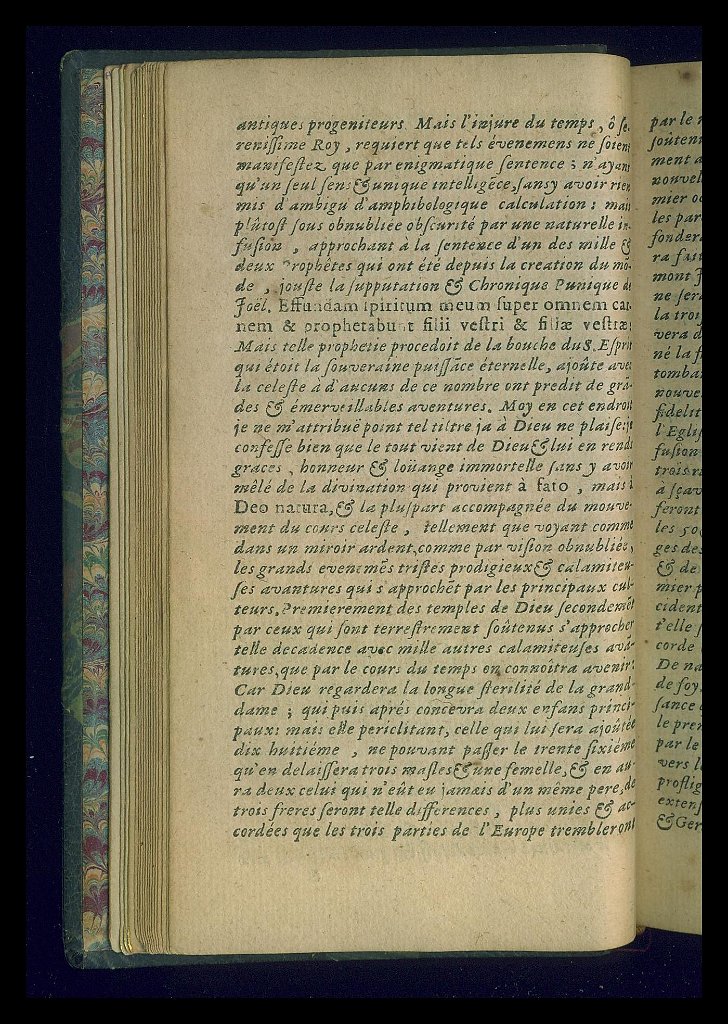 antiques progeniteurs. Mais l'injure du temps, ô se-
renissime Roy, requiert que tels évenemens ne soient
manifestez que par enigmatique sentence ; n'ayant
qu'un seul sens & unique intelligēce, sansy avoir rien
mis d'ambigu d'amphibologique calculation : mais
plûtost sous obnubliée obscurité par une naturelle in-
fusion , approchant à la sentence d'un des mille &
deux Prophêtes qui ont été depuis la creation du mō-
de , jouste la supputation & Chronique Punique de
Joël. Effundam spiritum meum super omnem car-
nem & prophetabunt filii vestri & filiæ vestræ.
Mais telle prophetie procedoit de la bouche du S. Esprit
qui étoit la souveraine puissāce éternelle, ajoûte avec
la celeste à d'aucuns de ce nombre ont predit de grā-
des & émerveillables aventures. Moy en cet endroit
je ne m'attribuë point tel tiltre ja à Dieu ne plaise: je
confesse bien que le tout vient de Dieu & lui en rends
graces , honneur & loüange immortelle sans y avoir
mêlé de la divination qui provient à fato , mais à
Deo natura, & la pluspart accompagnée du mouve-
ment du cours celeste , tellement que voyant comme
dans un miroir ardent, comme par vision obnubliée,
les grands evenemēs tristes prodigieux & calamiteu-
ses avantures qui s'approchēt par les principaux cul-
teurs. Premierement des temples de Dieu secondemēt
par ceux qui sont terrestrement soûtenus s'approcher
telle decadence avec mille autres calamiteuses avā-
tures, que par le cours du temps on connoîtra avenir:
Car Dieu regardera la longue sterilité de la grand-
dame ; qui puis aprés concevra deux enfans princi-
paux: mais elle periclitant, celle qui lui sera ajoûtée
dix huitiéme , ne pouvant passer le trente sixiéme
qu'en delaissera trois masles & une femelle, & en au-
ra deux celui qui n'eût eu jamais d'un même pere, de
trois freres seront telle differences , plus unies & ac-
cordées que les trois parties de l'Europe trembleront
par le
soûten
ment a
nouvel
mier
les par
fonder
ra fai
mont
ne ser
la troi
vera d
né la f
tomba
nouve
fidelit
l'Egli
fusion
trois
à sçav
seront
les 50
ges des
& de
mier p
cident
t'elle
corde
De na
de foy
sance
le pre
par le
vers l
proflig
extens
& Ger